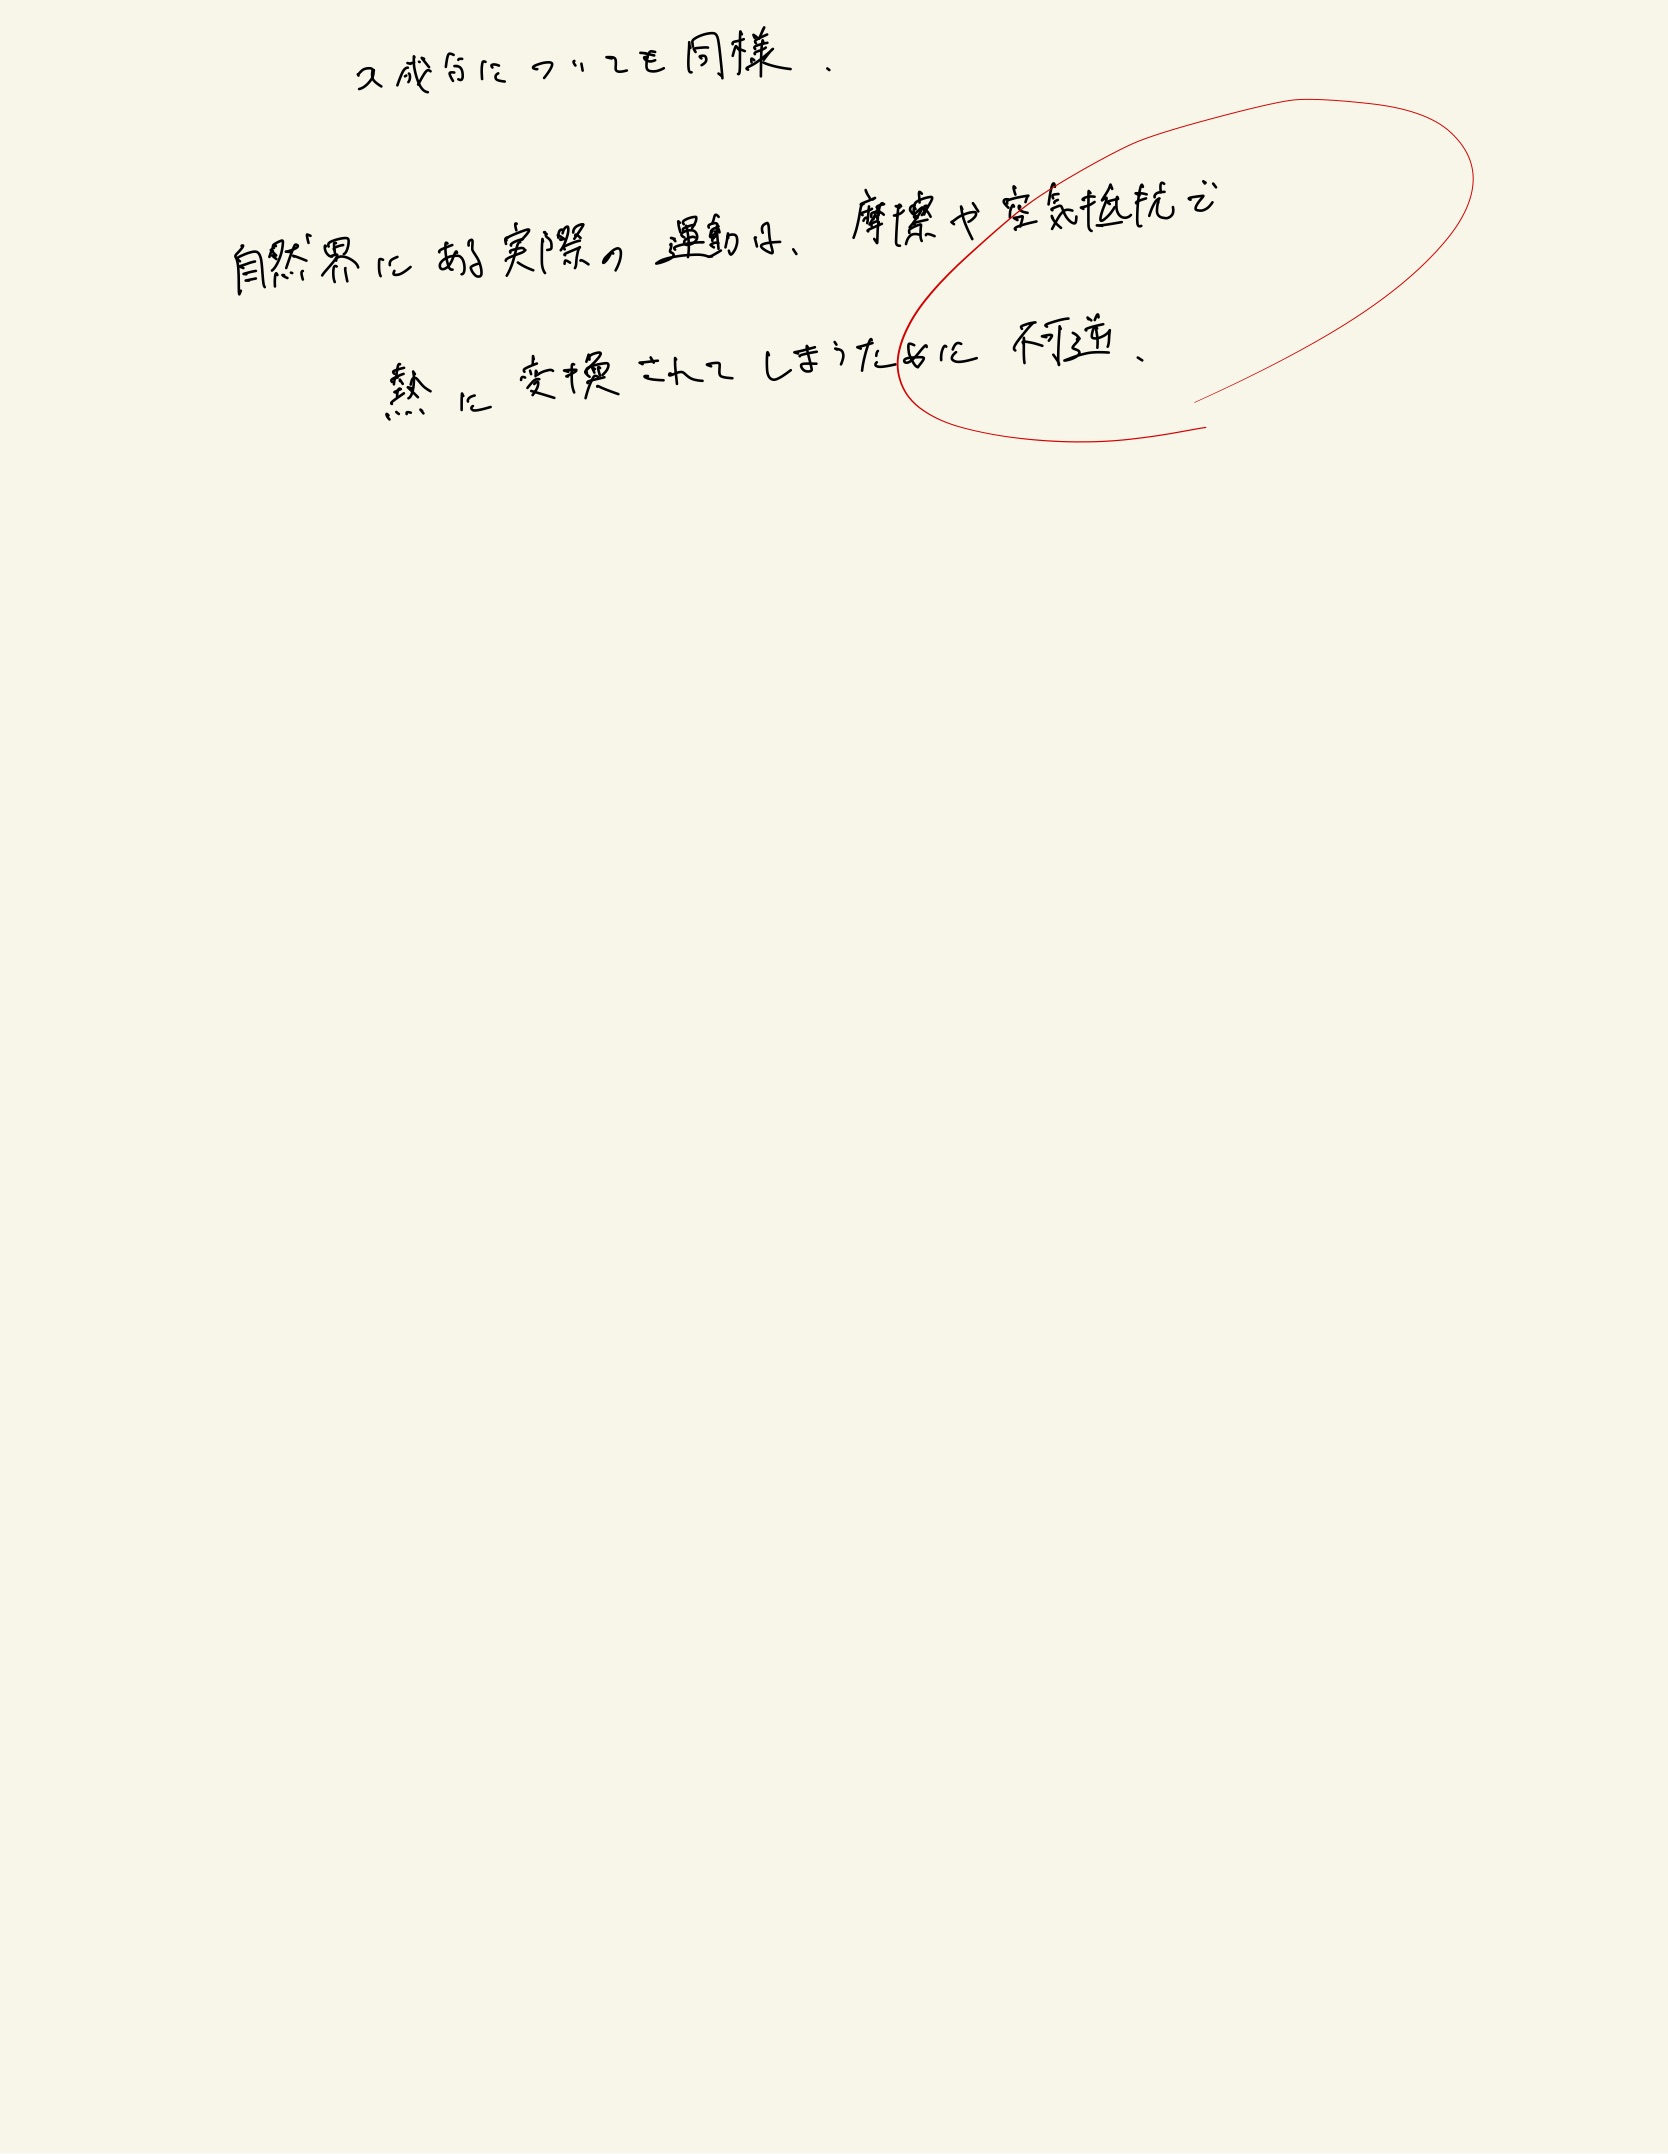 x成分についても同様.
自然界にある実際の運動は、摩擦や空気抵抗で
熱に変換されてしまうために不可逆、